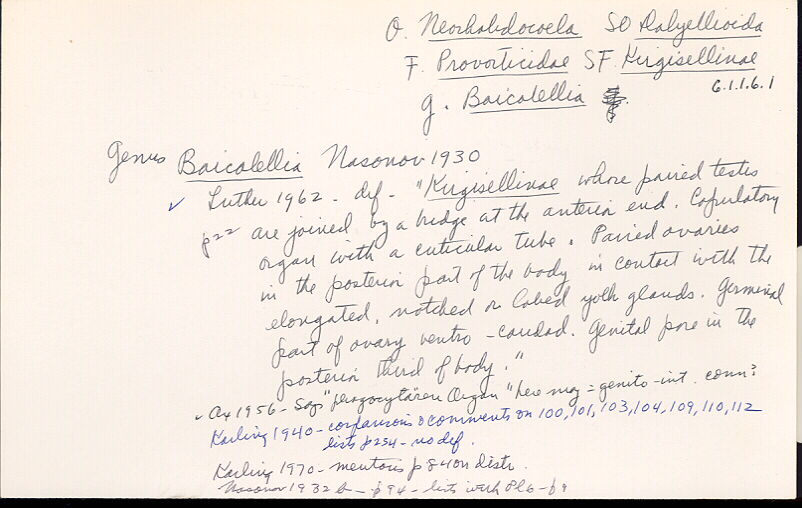 O. Neorhabdocoela SO Dalyellioida
F. Provorticidae SF. Kirgisellinae
6.1.1.6.1
g. Baicalellia
Genus Baicalellia Nasonov 1930
✓ Luther 1962 - def - "Kirgisellinae whose paired testes
p22 are joined by a bridge at the anterior end. Copulatory
organ with a cuticular tube. Paired ovaries
in the posterior part of the body in contact with the
elongated, notched or lobed yolk glands. Germinal
part of ovary ventro-caudad. Genital pore in the
posterior third of body."
✓ Ax 1956 - says "phagocytären Organ" here may = genito-int. conn?
Karling 1940 - comparisons & comments on 100, 101, 103, 104, 109, 110, 112
lists p234 - no def.
Karling 1970 - mentions p 84 on distr.
Nasonov 1932 b - p 94 - lists with Pl 6 -